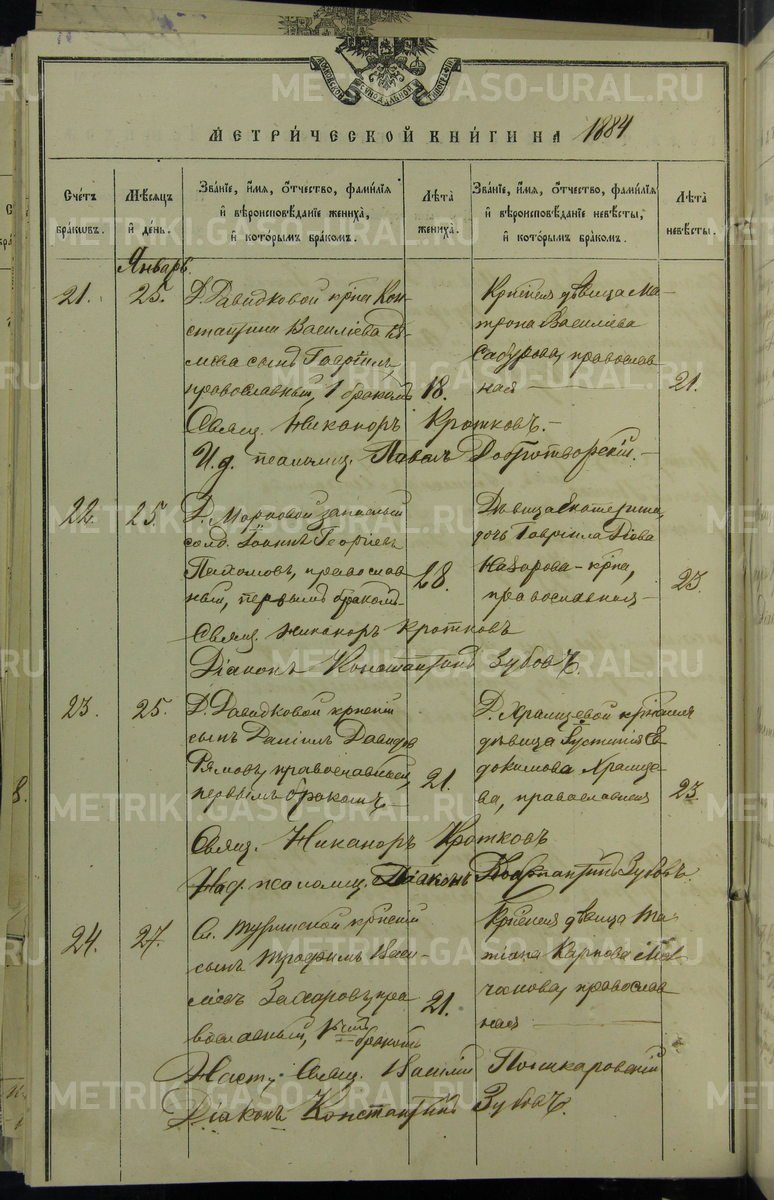 МЕТРИ́ЧЕСКОЙ КНИ́ГИ НА 1884
Сче́тъ бра́кωвъ.
Мѣ́сяцъ и҆ де́нь.
Зва́нїе, и҆́мя, ѻ҆́тчество, фами́лїя и҆ вѣроисповѣ́данїе жениха́, и҆ кото́рымъ бра́комъ.
Лѣ́та жениха́.
Зва́нїе, и҆́мя, ѻ҆́тчество, фами́лїя и҆ вѣроисповѣ́данїе невѣ́сты, и҆ кото́рымъ бра́комъ.
Лѣ́та невѣ́сты.
Январь
21. 25.
Д. Давидковой кр̃на Кон-
стантина Василіева
сынъ Гавріилъ,
православный, 1 бракомъ 18.
Кр̃нская дѣвица Ма-
трона Василіева
Сабурова, православ-
ная 21.
Свящ. Никаноръ Кротковъ.
И. д. псаломщ. Павелъ Добротворскій.
22. 25.
запасный
солд. Іоаннъ Георгіевъ
Пахомовъ, православ-
ный, первымъ бракомъ 28.
Дѣвица Екатерина,
дочь Гавріила
Назарова кр̃на,
православная 23.
Свящ. Никаноръ Кротковъ
Діаконъ Константинъ Зубовъ.
23. 25.
Д. Давидковой кр̃нскій
сынъ Даніилъ Давидовъ
православный,
первымъ бракомъ 21.
Д. Храмцевой кр̃нская
дѣвица Іустинія Ев-
докимова Храмцо-
ва, православная 23.
Свящ. Никаноръ Кротковъ
псаломщ. Діаконъ Константинъ Зубовъ.
24. 27.
Сл. Туринской кр̃нскій
сынъ Трофимъ Васи-
ліевъ Захаровъ, пра-
вославный, 1ымъ бракомъ 21.
Кр̃нская дѣвица Та-
тіана Карпова
православ-
ная
Наст. Свящ. Василій
Діаконъ Константинъ Зубовъ.
METRIKI.GASO-URAL.RU